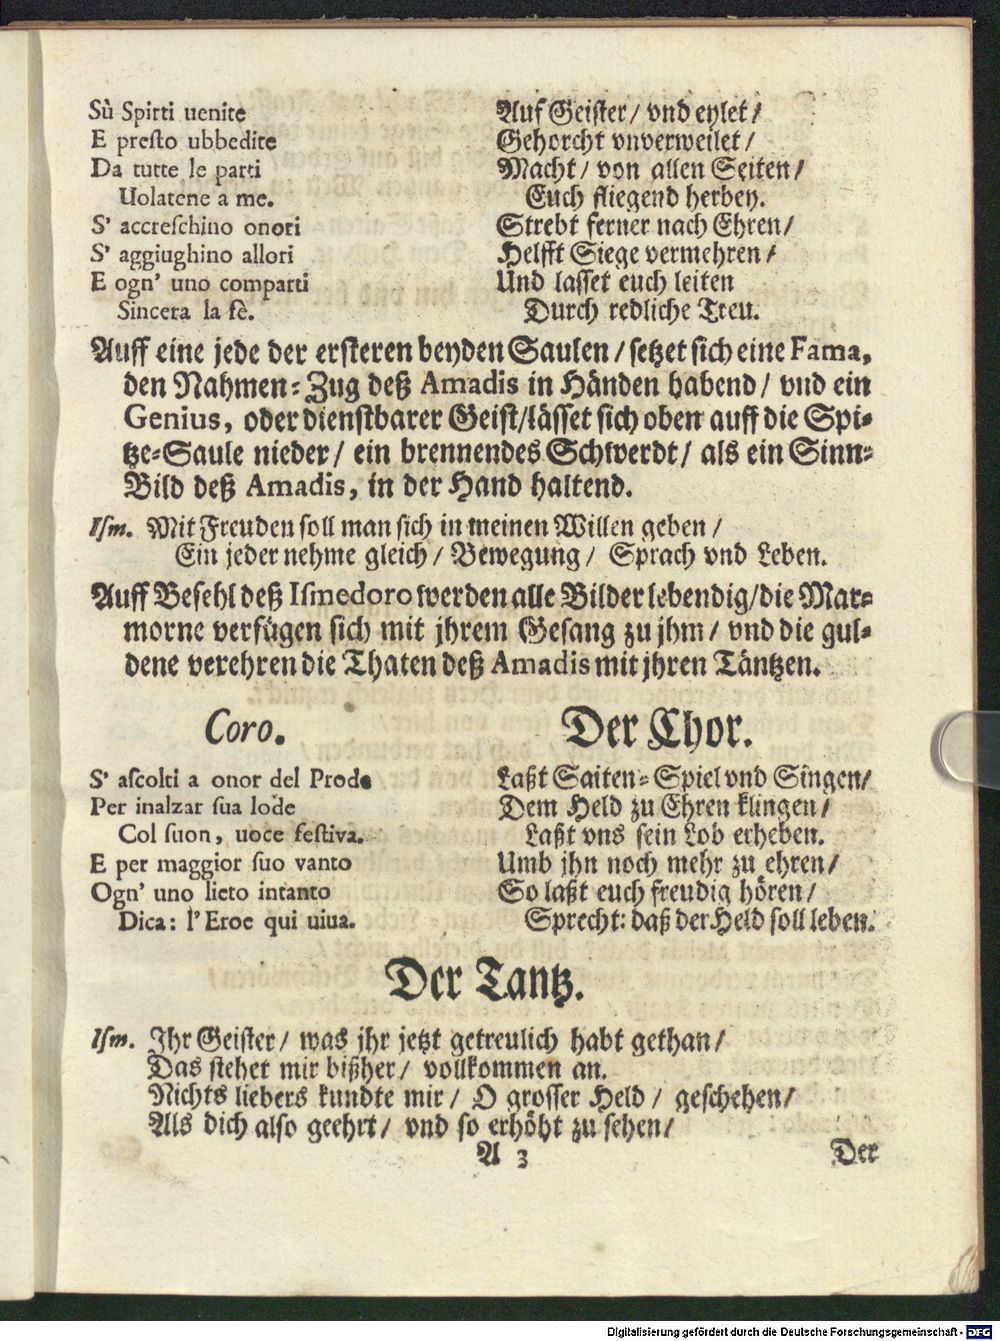 Sù Spirti uenite
E preſto ubbedite
Da tutte le parti
Uolatene a me.
S' accreſchino onori
S' aggiughino allori
E ogn' uno comparti
Sincera la fè.
Auf Geiſter / vnd eylet /
Gehorcht vnverweilet /
Macht / von allen Seiten /
Euch fliegend herbey.
Strebt ferner nach Ehren /
Helfft Siege vermehren /
Und laſſet euch leiten
Durch redliche Treu.
Auff eine jede der erſteren beyden Saulen / ſetzet ſich eine Fama,
den Nahmen-Zug deß Amadis in Händen habend / vnd ein
Genius, oder dienſtbarer Geiſt / läſſet ſich oben auff die Spi-
tze-Saule nieder / ein brennendes Schwerdt / als ein Sinn-
Bild deß Amadis, in der Hand haltend.
Iſm. Mit Freuden ſoll man ſich in meinen Willen geben /
Ein jeder nehme gleich / Bewegung / Sprach vnd Leben.
Auff Befehl deß Iſmedoro werden alle Bilder lebendig / die Mar-
morne verfügen ſich mit jhrem Geſang zu jhm / vnd die gul-
dene verehren die Thaten deß Amadis mit jhren Täntzen.
Coro.
S' aſcolti a onor del Prode
Per inalzar ſua lode
Col ſuon, uoce feſtiva.
E per maggior ſuo vanto
Ogn' uno lieto intanto
Dica: l' Eroe qui uiua.
Der Chor.
Laßt Saiten-Spiel vnd Singen /
Dem Held zu Ehren klingen /
Laßt vns ſein Lob erheben.
Umb jhn noch mehr zu ehren /
So laßt euch freudig hören /
Sprecht: daß der Held ſoll leben.
Der Tantz.
Iſm. Ihr Geiſter / was jhr jetzt getreulich habt gethan /
Das ſtehet mir bißher / vollkommen an.
Nichts liebers kundte mir / O groſſer Held / geſchehen /
Als dich alſo geehrt / vnd ſo erhöht zu ſehen /
A 3
Der
Digitalisierung gefördert durch die Deutsche Forschungsgemeinschaft - DFG